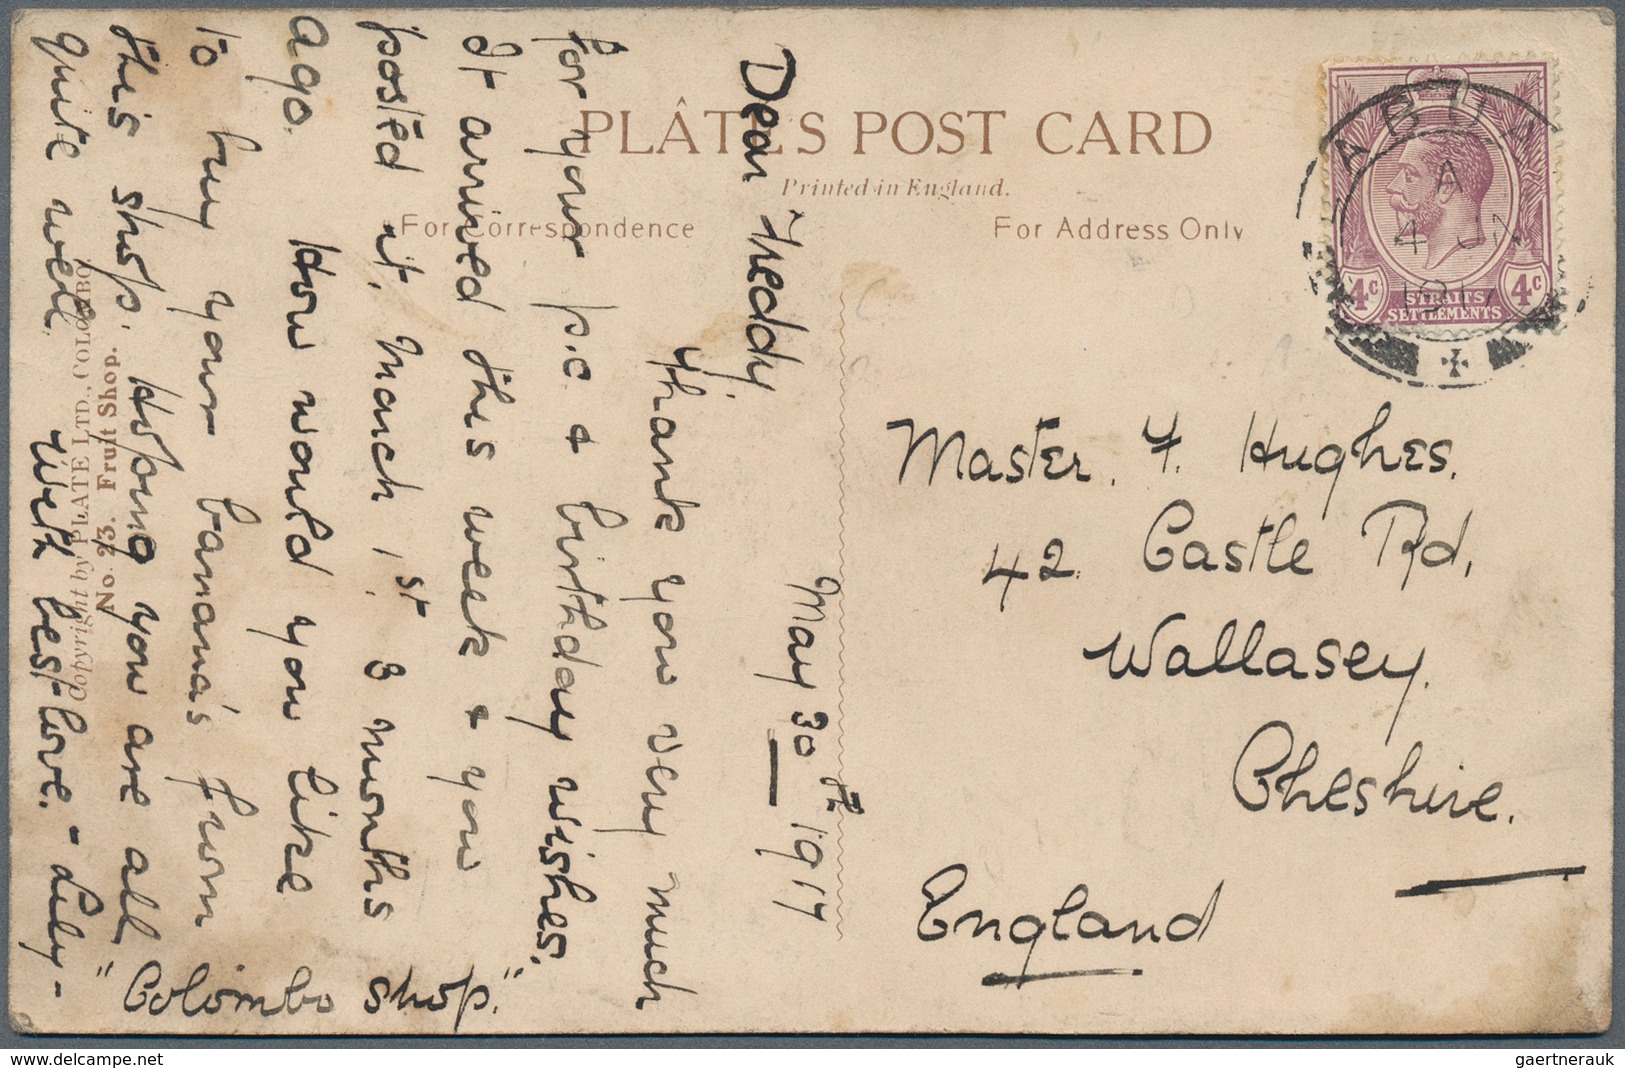 PLÂTÉ'S POST CARD
Printed in England.
For Correspondence
For Address Only
STRAITS
SETTLEMENTS
4c 4c
A
4 JN
1917
May 30th 1917
Dear Freddy,
Thank you very much
for your p.c & birthday wishes,
It arrived this week & you
posted it, March 1st. 3 months
ago. How would you like
to buy your banana's from
this shop. Hoping you are all
quite well. With best love. - Lily -
"Colombo shop."
Copyright by PLATE LTD., COLOMBO
No. 23. Fruit Shop.
Master. F. Hughes.
42. Castle Rd,
Wallasey.
Cheshire.
England
gaertnerauk